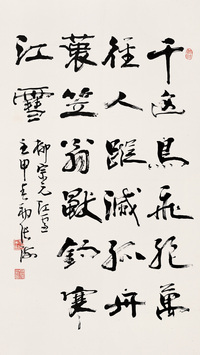 千山鳥飛絕萬
徑人蹤滅孤舟
蓑笠翁獨釣寒
江雪
柳宗元江雪
壬申春初張海